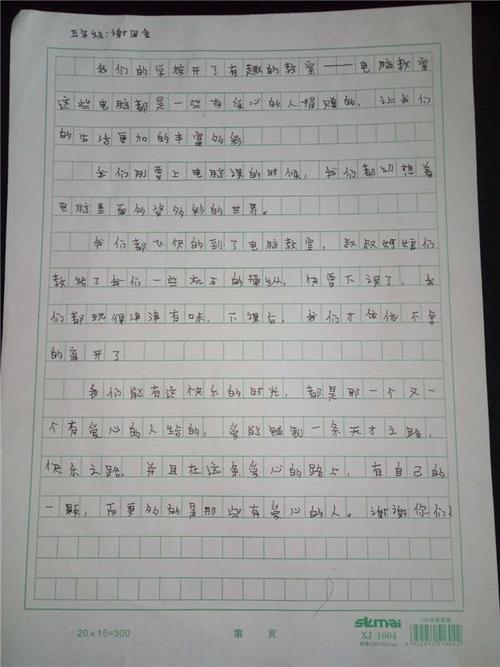 五年级:谢田金
我们的学校开了有趣的教室——电脑教室
这些电脑都是一些有爱心的人捐赠的,让我们
的生活更加的丰富多彩
我们刚要上电脑课的时候,我们都幻想着
电脑里面多姿多彩的世界。
我们都飞快的到了电脑教室,叔叔婶婶们
教给了我们一些机子的操纵,快要下课了,我
们都玩得津津有味,下课后,我们才依依不舍
的离开了
我们能有这个快乐的时光,都是那一个又一
个有爱心的人给的,爱能铺制一条天才之路,
快乐之路.并且在这条爱心的路上,有自己的
一颗,而更多的是那些有爱心的人。谢谢你们!
20×15=300 第 页
XJ 1604